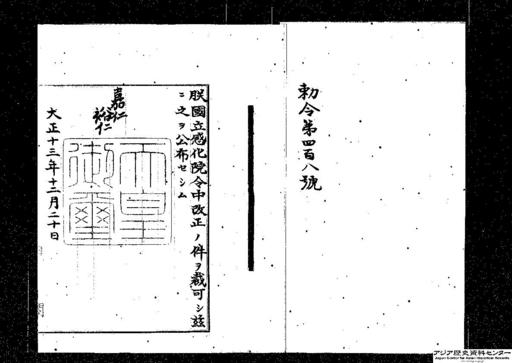 勅令第四百八號
朕國立感化院令中改正ノ件ヲ裁可シ玆
ニ之ヲ公布セシム
嘉仁
裕仁
天皇御璽
大正十三年十二月二十日
アジア歴史資料センター
Japan Center for Asian Historical Records